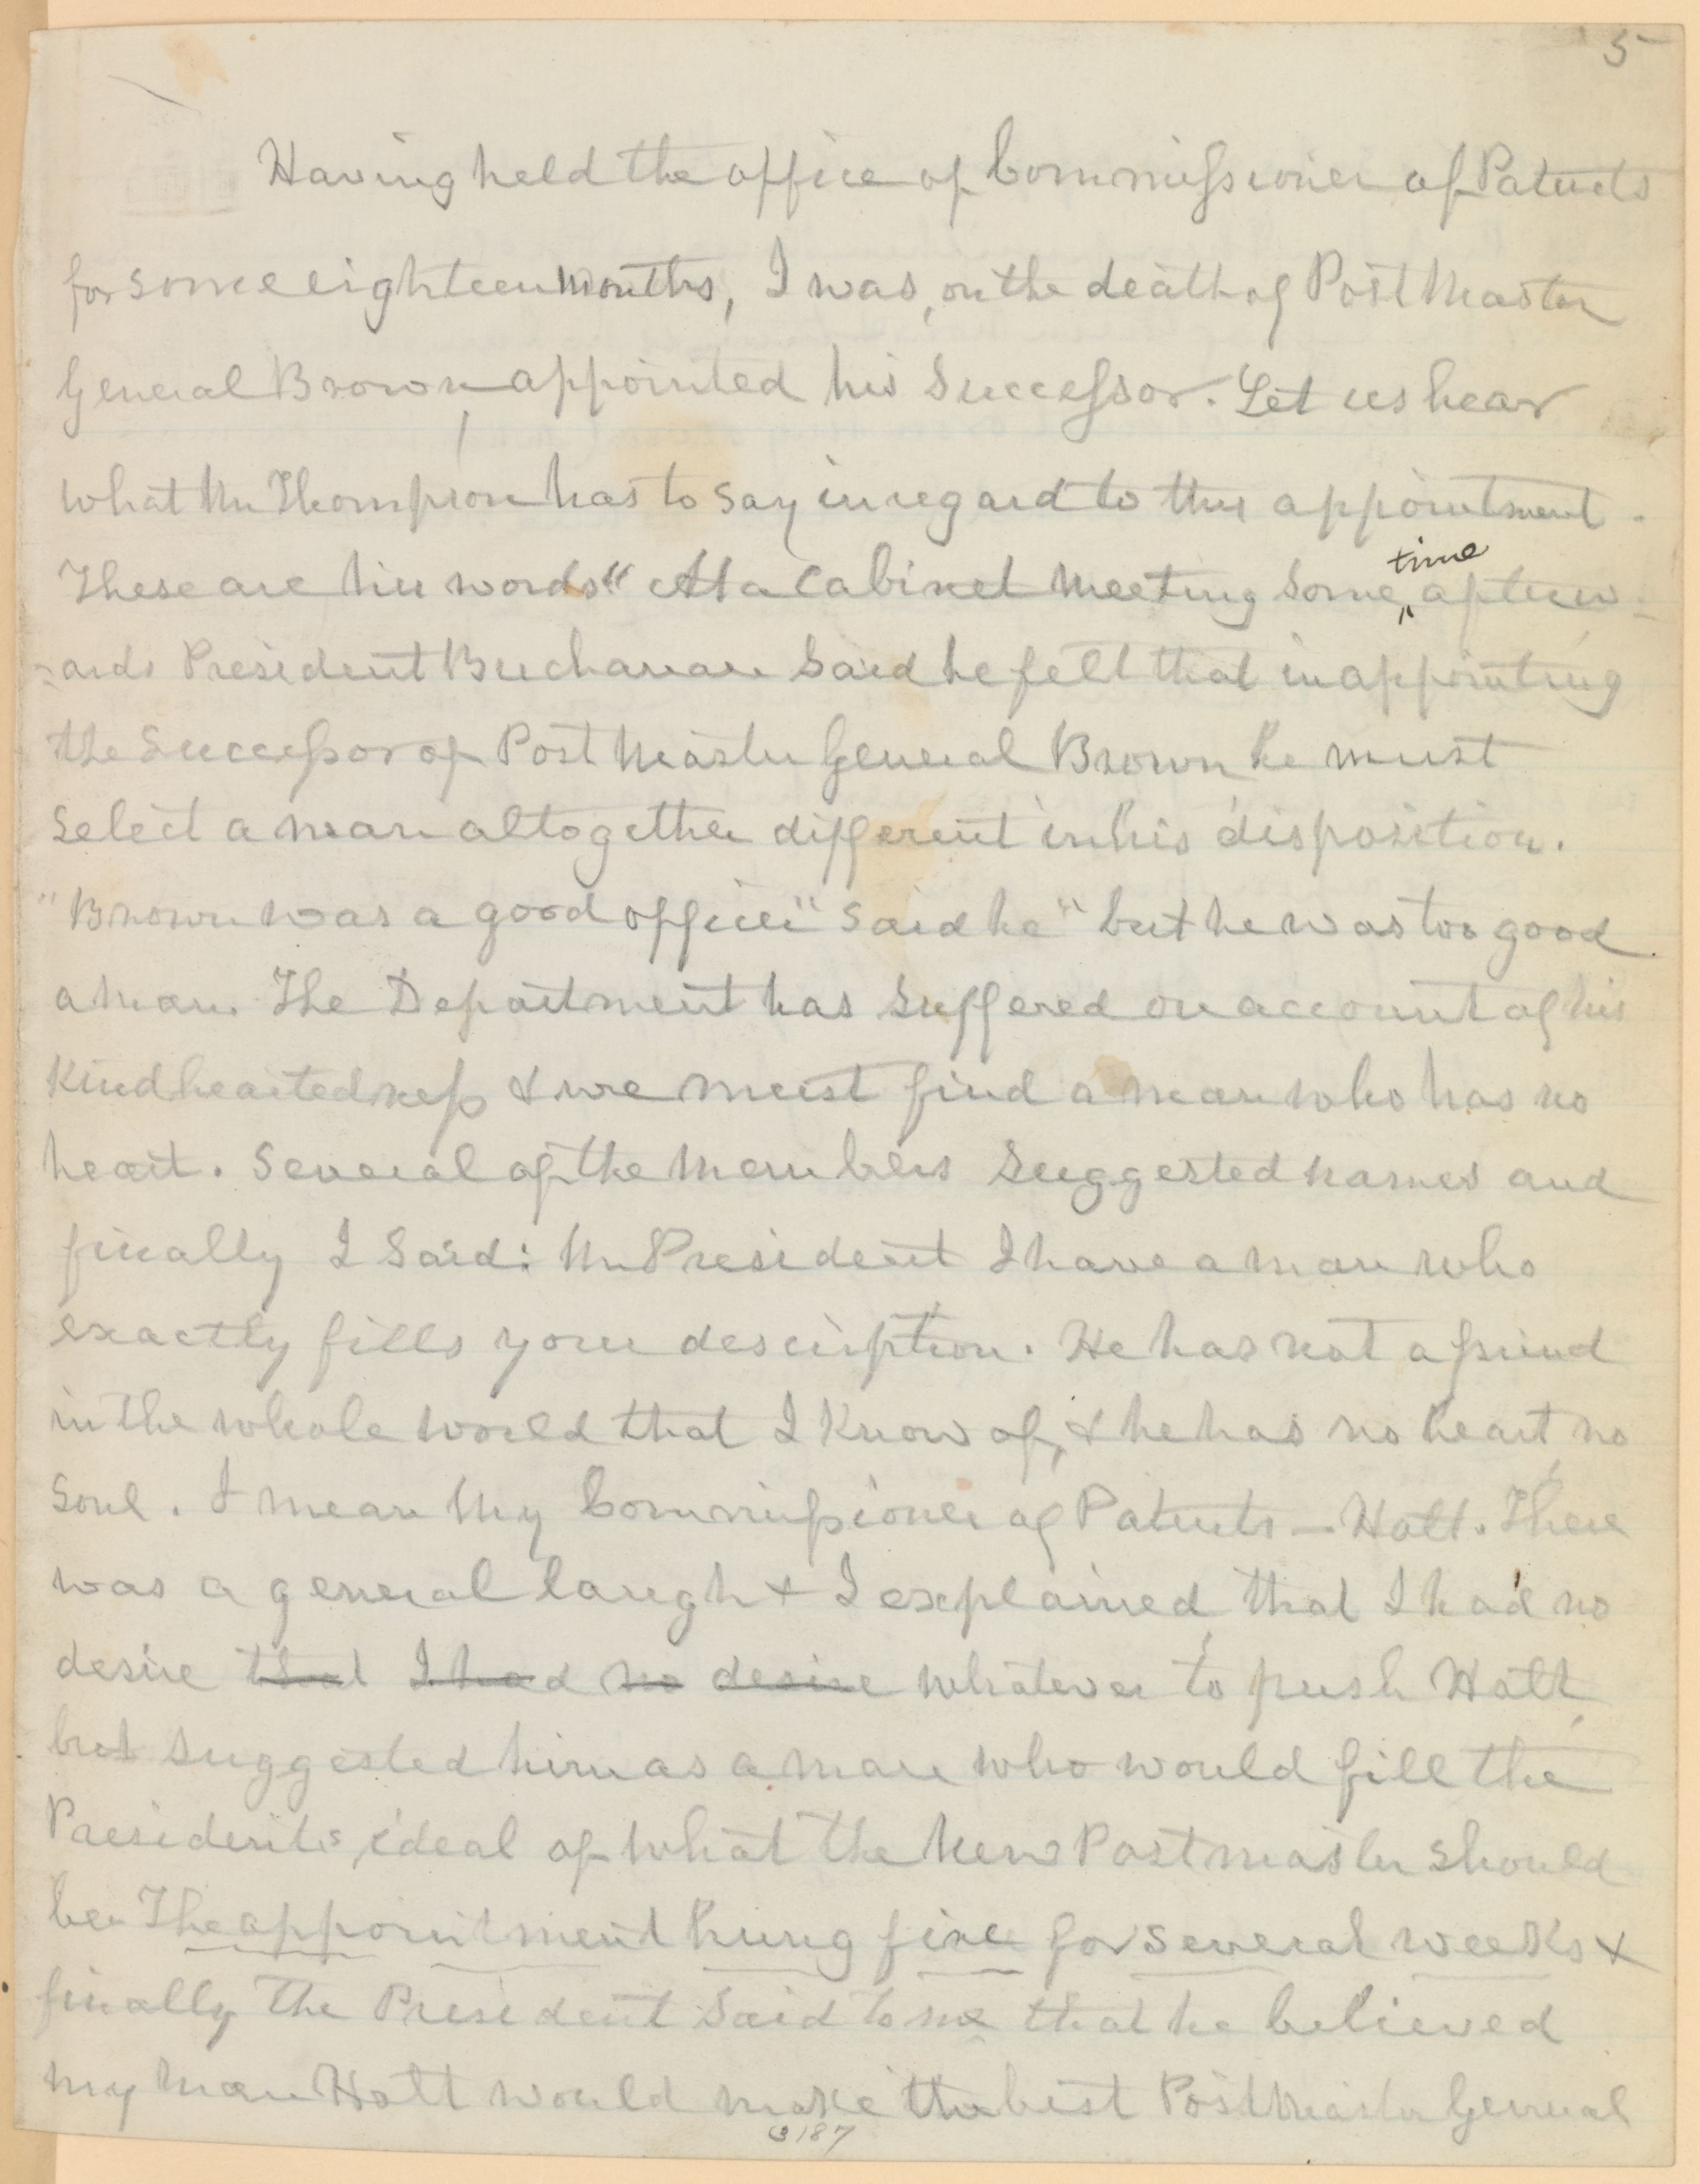 5
Having held the office of Commissioner of Patents
for some eighteen months, I was, on the death of Post Master
General Brown, appointed his Successor. Let us hear
what Mr Thompson has to say in regard to this appointment.
time
These are his words "At a Cabinet Meeting Some ^ afterw-
-ards President Buchanan Said he felt that in appointing
the Successor of Post Master General Brown he must
Select a man altogether different in his disposition.
"Brown was a good officer" Said he "but he was too good
a man. The Department has Suffered on account of his
Kindheartedness & we must find a man who has no
heart. Several of the Members Suggested names and
finally I Said: Mr President I have a man who
exactly fills your description. He has not a friend
in the whole world that I Know of, & he has no heart, no
Soul. I mean My Commissioner of Patents — Holt. There
was a general laugh & I explained, that I had no
desire that I had no desire whatever to push Holt,
but Suggested him as a man who would fill the
President's ideal of what the New Postmaster Should
be. The appointment hung fire for Several weeks &
finally the President Said to me that he believed
my Man Holt would make the best Post Master General
3187